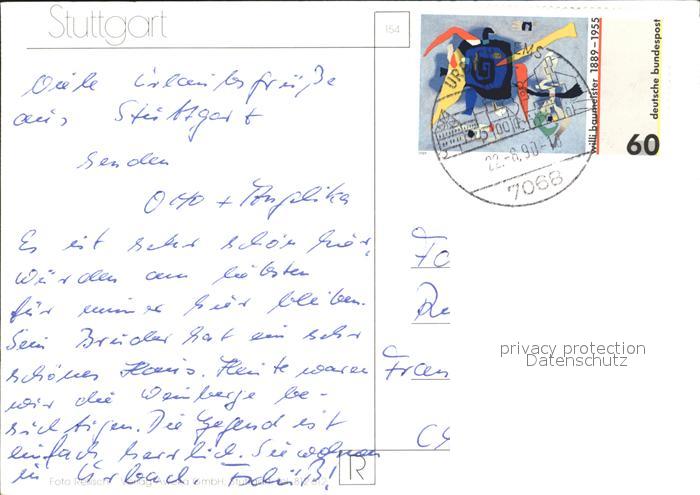 Stuttgart
154
Viele Urlaubsgrüße
aus Stuttgart
senden
Otto + Angelika
Es ist sehr schön hier,
würden am liebsten
für immer hier bleiben.
Sein Bruder hat ein sehr
schönes Haus. Heute waren
wir die Weinberge be-
sichtigen. Die Gegend ist
einfach herrlich. Sie wohnen
in Urbach. Tschüß!
willi baumeister 1889-1955
deutsche bundespost
60
22.-6.90
7068
Fran
privacy protection
Datenschutz
R
Foto
Verlag
GmbH